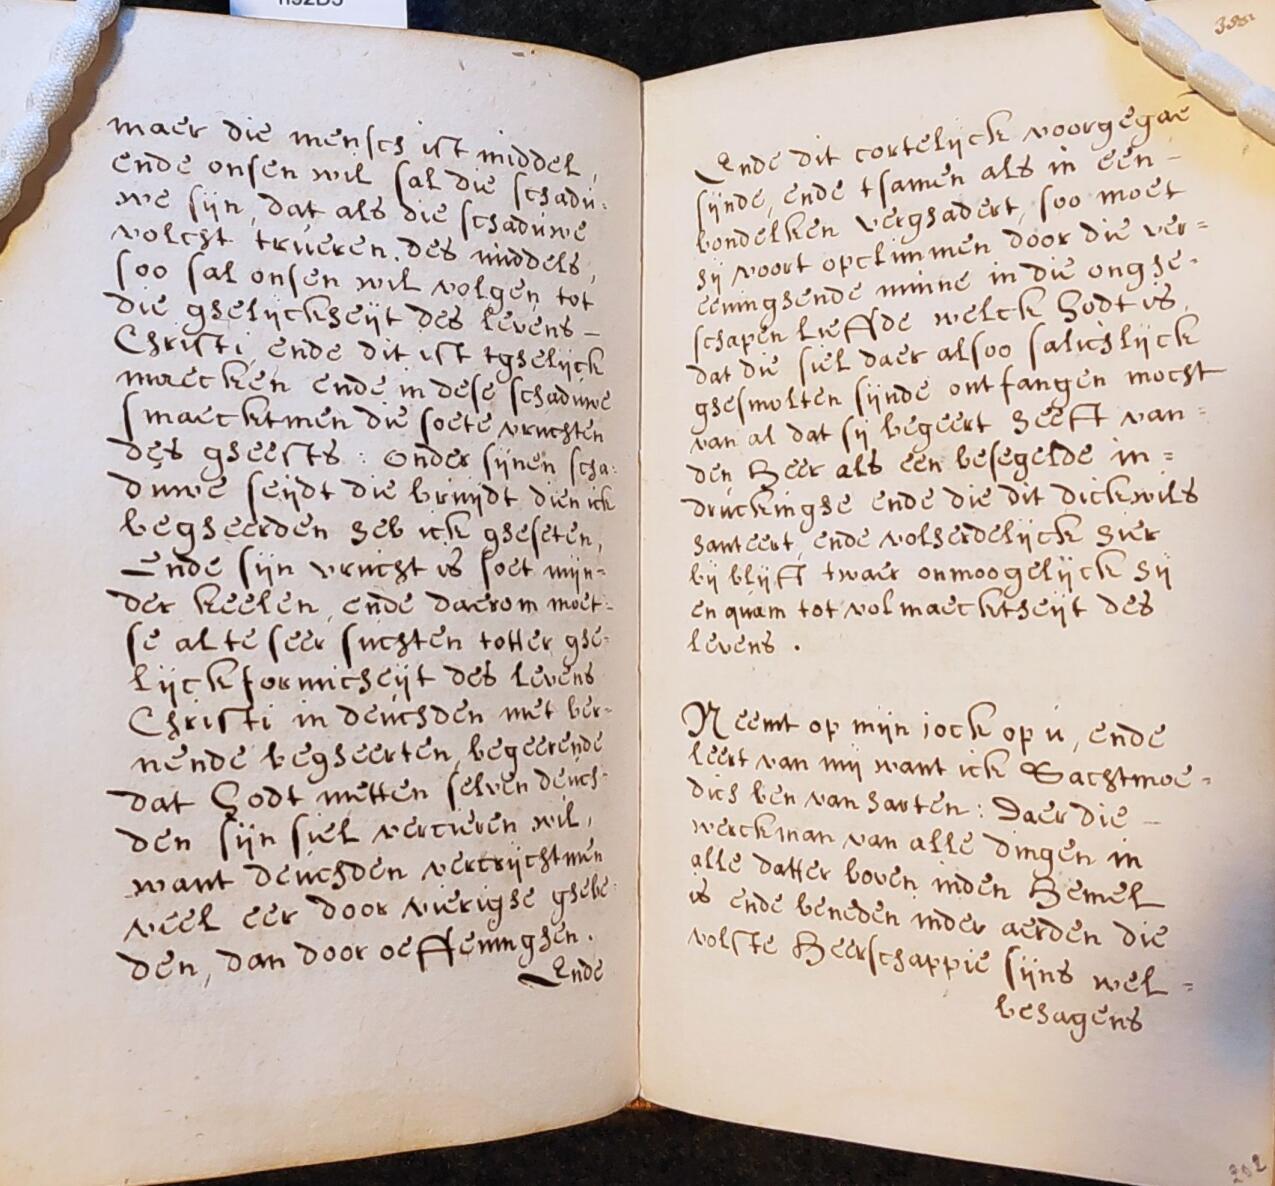 maer die mensch ist middel,
ende onsen wil sal die schadu=
we sijn, dat als die schaduwe
volcht trueren des middels,
soo sal onsen wil volgen tot
die ghelijckheijt des levens -
Christi, ende dit ist tghelijck
maecken ende in dese schaduwe
smaecktmen die soete vruchten
des gheests : onder sijnen scha=
duwe seijdt die bruijdt dien ick
begheerden heb ick gheseten,
Ende sijn vrucht is soet mijn=
der keelen, ende daerom moet=
se al te seer suchten totter ghe=
lijckformicheijt des levens
Christi in deuchden met ber=
nende begheerten, begeerende
dat Godt metten selven deuch=
den sijn siel vercieren wil,
want deuchden vercrijchtmen
veel eer door vierighe ghebe=
den, dan door oeffeninghen.
Ende
Ende dit cortelijck voorgegae
sijnde, ende tsamen als in een -
bondelken verghadert, soo moet
sij voort opclimmen door die ver=
eeninghende minne in die onghe=
schapen lieffde welck Godt is,
dat die siel daer alsoo salichlijck
ghesmolten sijnde ontfangen mocht
van al dat sij begeert heeft van=
den Heer als een besegelde in=
druckinghe ende die dit dickwils
hanteert, ende volherdelijck hier
bij blijft twaer onmoogelijck hij
en quam tot volmaecktheijt des
levens .
Neemt op mijn jock op u, ende
leert van mij want ick Sachtmoe=
dich ben van harten : Daer die -
werckman van alle dingen in
alle datter boven inden Hemel
is ende beneden inder aerden die
volste Heerschappie sijns wel=
behagens
202